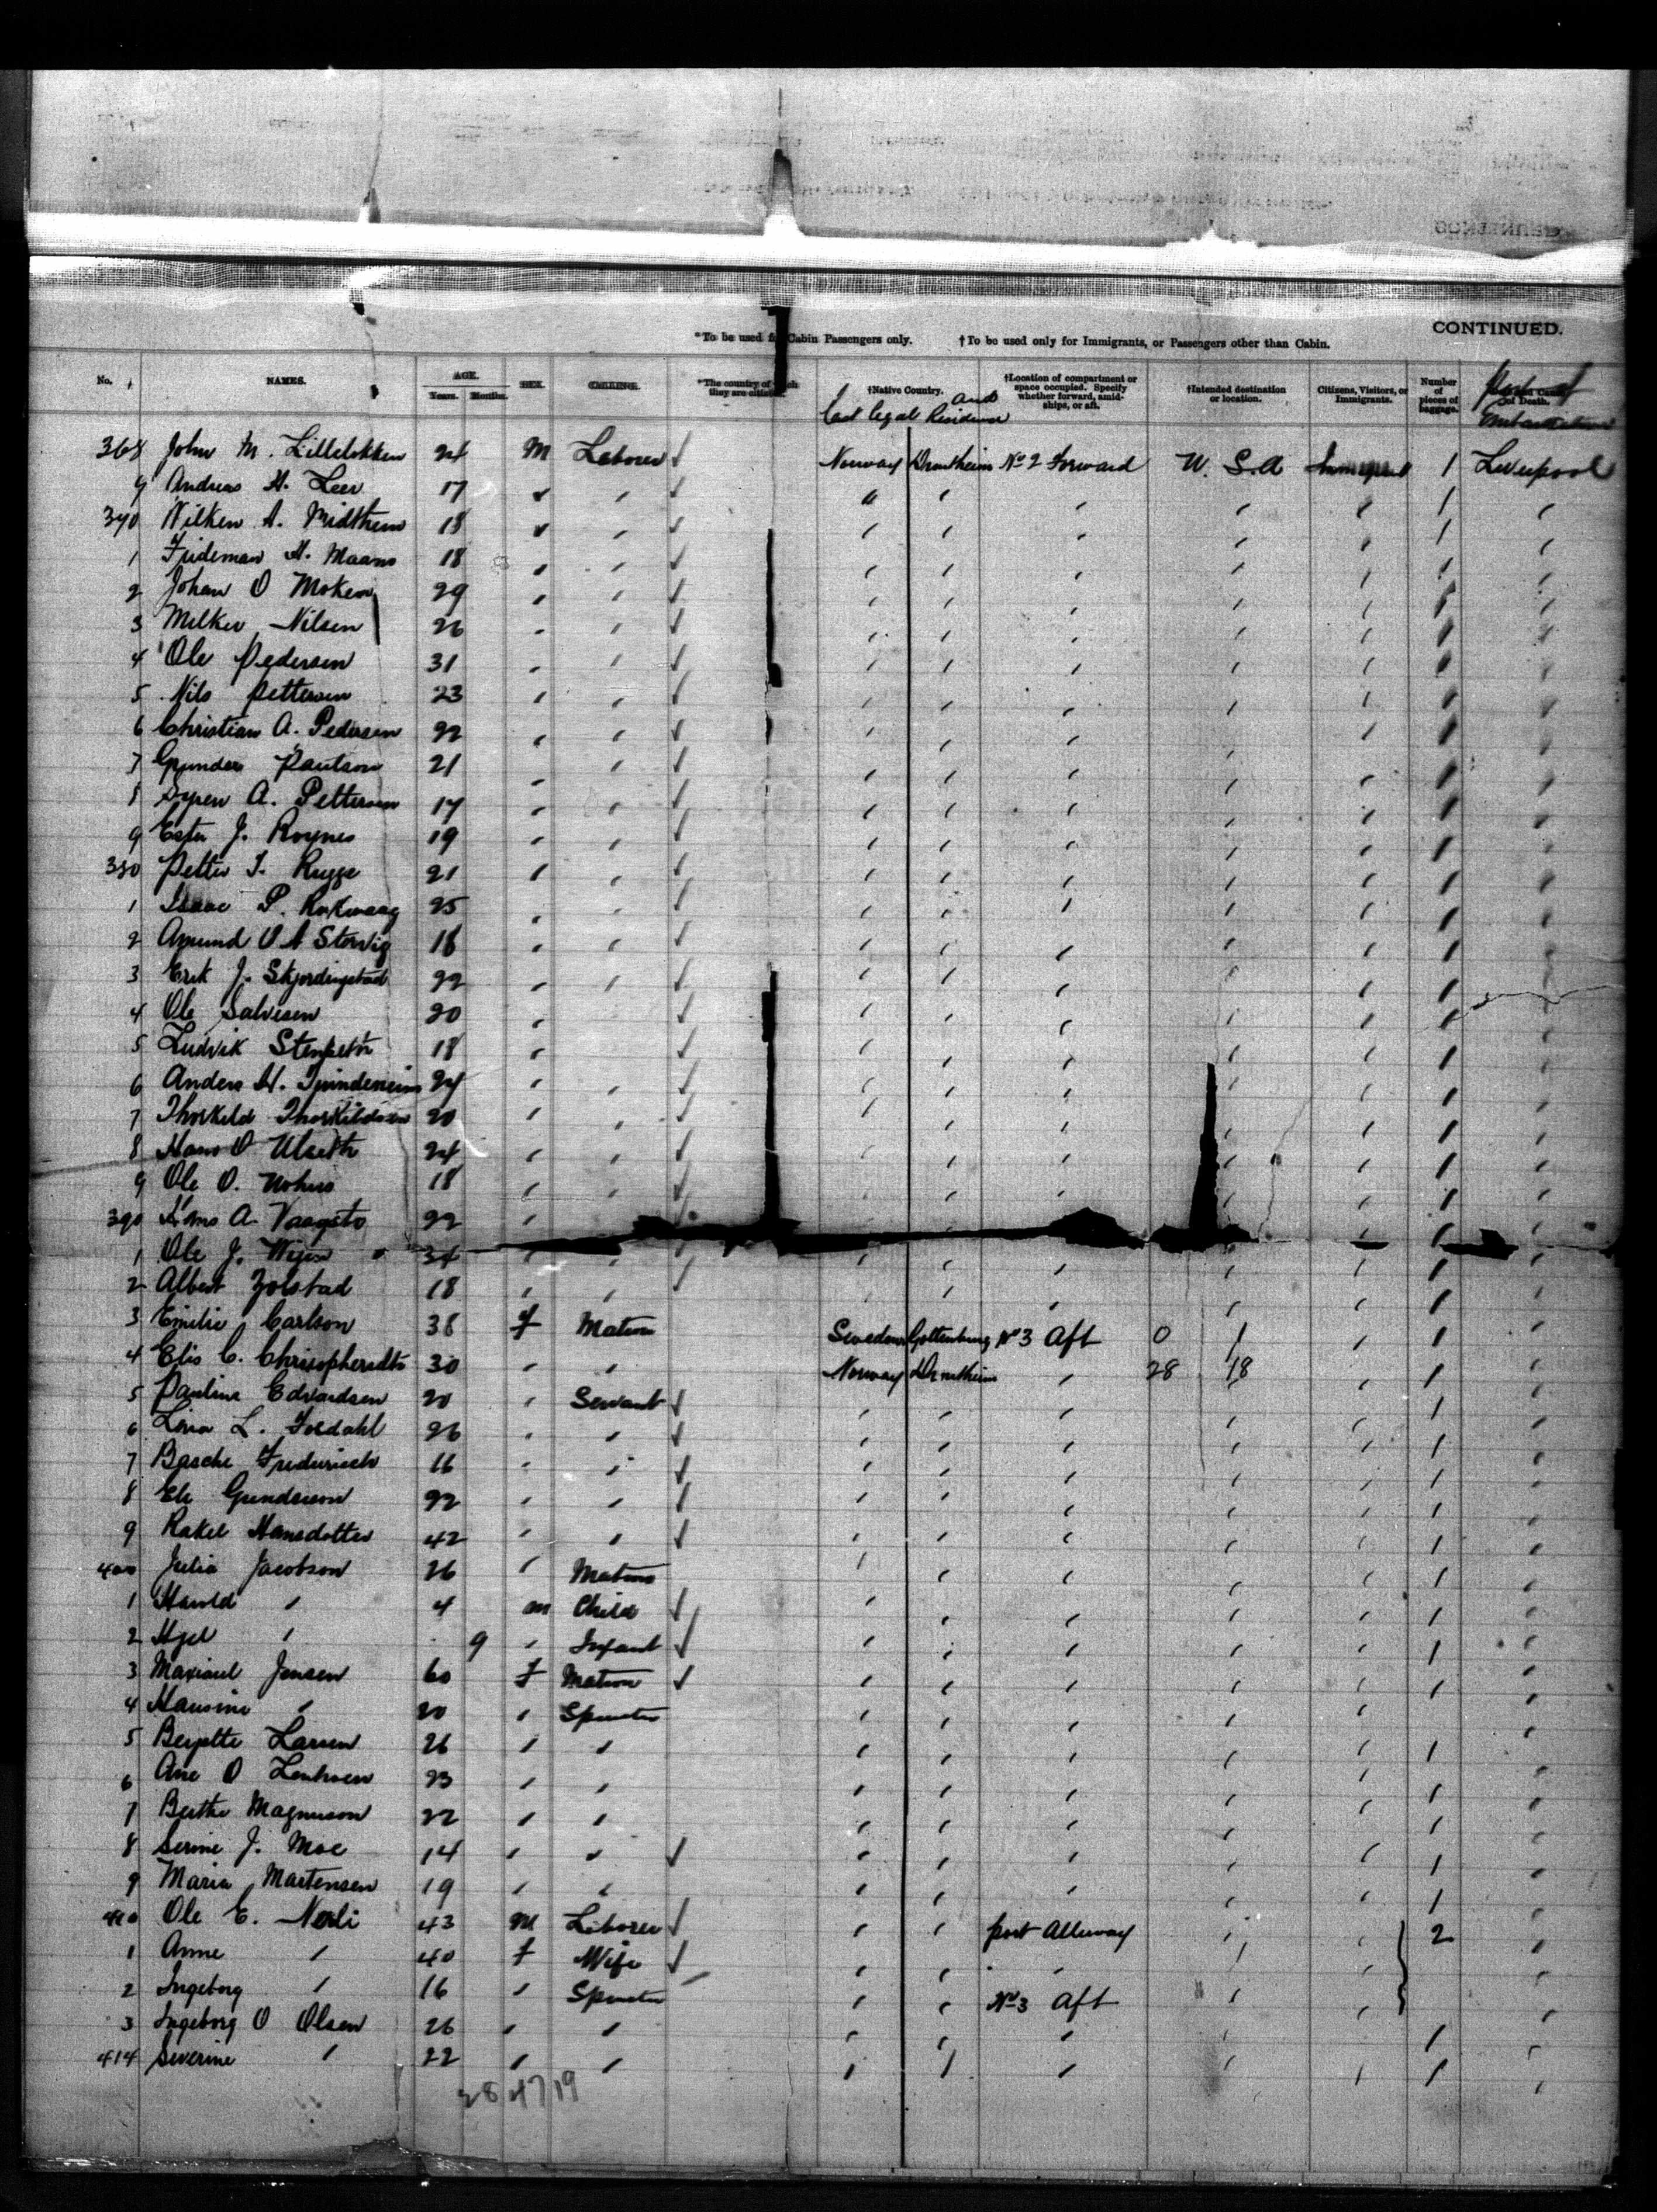 CONTINUED.
*To be used for Cabin Passengers only. †To be used only for Immigrants, or Passengers other than Cabin.
No. NAMES. AGE. Years. Months. SEX. CALLING. *The country of which they are citizens. †Native Country. †Location of compartment or space occupied. Specify whether forward, amidships, or aft. †Intended destination or location. Citizens, Visitors, or Immigrants. Number of pieces of baggage. of Death.
and Last legal Residence Port of Embarkation
368 John M. Lillelokken 24 M Laborer ✓ Norway Drontheim No 2 Forward U. S. A Immigrant 1 Liverpool
9 Andreas H. Leer 17 ✓ " 1
370 Wilken A. Midthem 18 ✓ 1
1 Frideman H. Maans 18 ✓
2 Johan O Moken 29 ✓
3 Melker Nilsen 26 ✓
4 Ole Pedersen 31 ✓
5 Nils Pettersen 23 ✓
6 Christian A. Pedersen 22 ✓
7 Gunder Paulson 21 ✓
8 A. Pettersen 17 ✓
9 J. Roynes 19 ✓ 1
380 Petter I. Rugge 21 ✓ 1
1 Isaac P. 25 ✓ 1
2 Amund O A Storvig 18 ✓ 1
3 Erik J. Skjordingstad 22 ✓ 1
4 Ole Salvesen 20 ✓ 1
5 Ludvik 18 ✓ 1
6 Anders H. 24 ✓ 1
7 Thorkeld Thorkildsen 20 ✓ 1
8 Hans O Ulseth 24 ✓ 1
9 Ole O. 18 ✓ 1
390 Hans A 22 ✓ 1
1 Ole J. 34 1
2 Albert Zolstad 18 ✓ 1
3 Emilie Carlson 38 f Matron Sweden Gottenburg No 3 Aft 0 1 1
4 Elis C. 30 Norway Drontheim 28 18 1
5 Pauline Edvardsen 20 Servant ✓ 1
6 Lina L. Foldahl 26 ✓ 1
7 Basche Frederisch 16 ✓ 1
8 Eli Gunderson 22 ✓ 1
9 Rakel Hansdotter 42 ✓ 1
400 Julia Jacobson 26 Matron 1
1 Harold 4 m Child ✓ 1
2 9 Infant ✓ 1
3 Jensen 60 f Matron ✓ 1
4 Hansine 20 Spinster
5 Larsen 26 1
6 Ane O 23 1
7 Berthe Magnuson 22 1
8 Serine J. Moe 14 ✓ 1
9 Maria Martensen 19 1
410 Ole E. Nerli 43 M Laborer ✓ port Alleway 2
1 Anne 40 f Wife ✓
2 Ingeborg 16 Spinster No 3 Aft
3 Ingeborg O Olsen 26 1
414 Severine 22 1
28 47 19